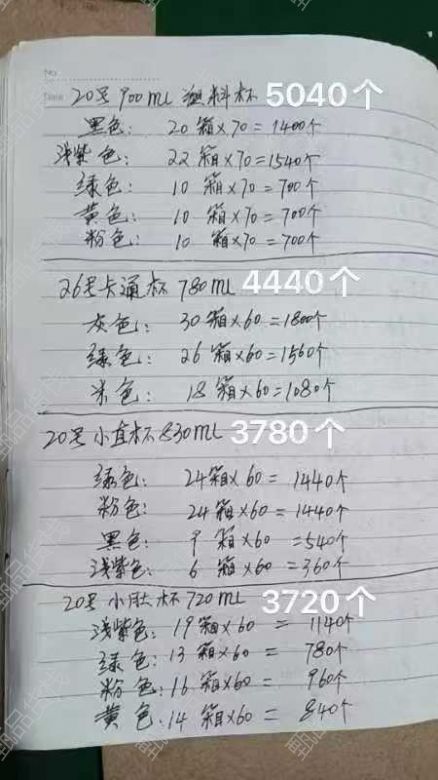 No
Date
20号 900ml 塑料杯 5040个
黑色: 20箱×70=1400个
浅紫色: 22箱×70=1540个
绿色: 10箱×70=700个
黄色: 10箱×70=700个
粉色: 10箱×70=700个
26号卡通杯 780ml 4440个
灰色: 30箱×60=1800个
绿色: 26箱×60=1560个
米色: 18箱×60=1080个
20号小直杯830ml 3780个
绿色: 24箱×60=1440个
粉色: 24箱×60=1440个
黑色: 9箱×60=540个
浅紫色: 6箱×60=360个
20号小肚杯720ml 3720个
浅紫色: 19箱×60=1140个
绿色: 13箱×60=780个
粉色: 16箱×60=960个
黄色: 14箱×60=840个